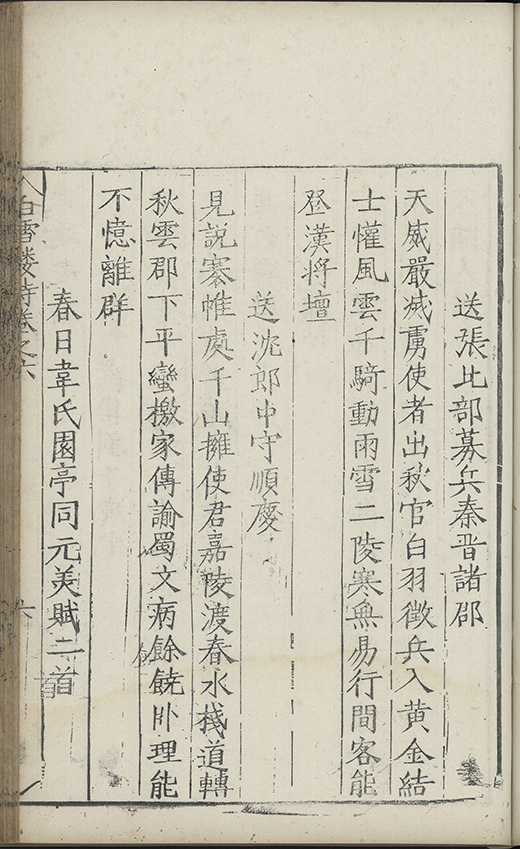 送張比部募兵秦晉諸郡
天威嚴滅虜使者出秋官白羽徵兵入黄金結
士懽風雲千騎動雨雪二陵寒無易行間客能
登漢將壇
送沈郎中守順慶
見說褰帷處千山擁使君嘉陵渡春水棧道轉
秋雲郡下平蠻檄家傳諭蜀文病餘饒卧理能
不憶離群
春日韋氏園亭同元美賦二首
白雪楼詩卷之六
六